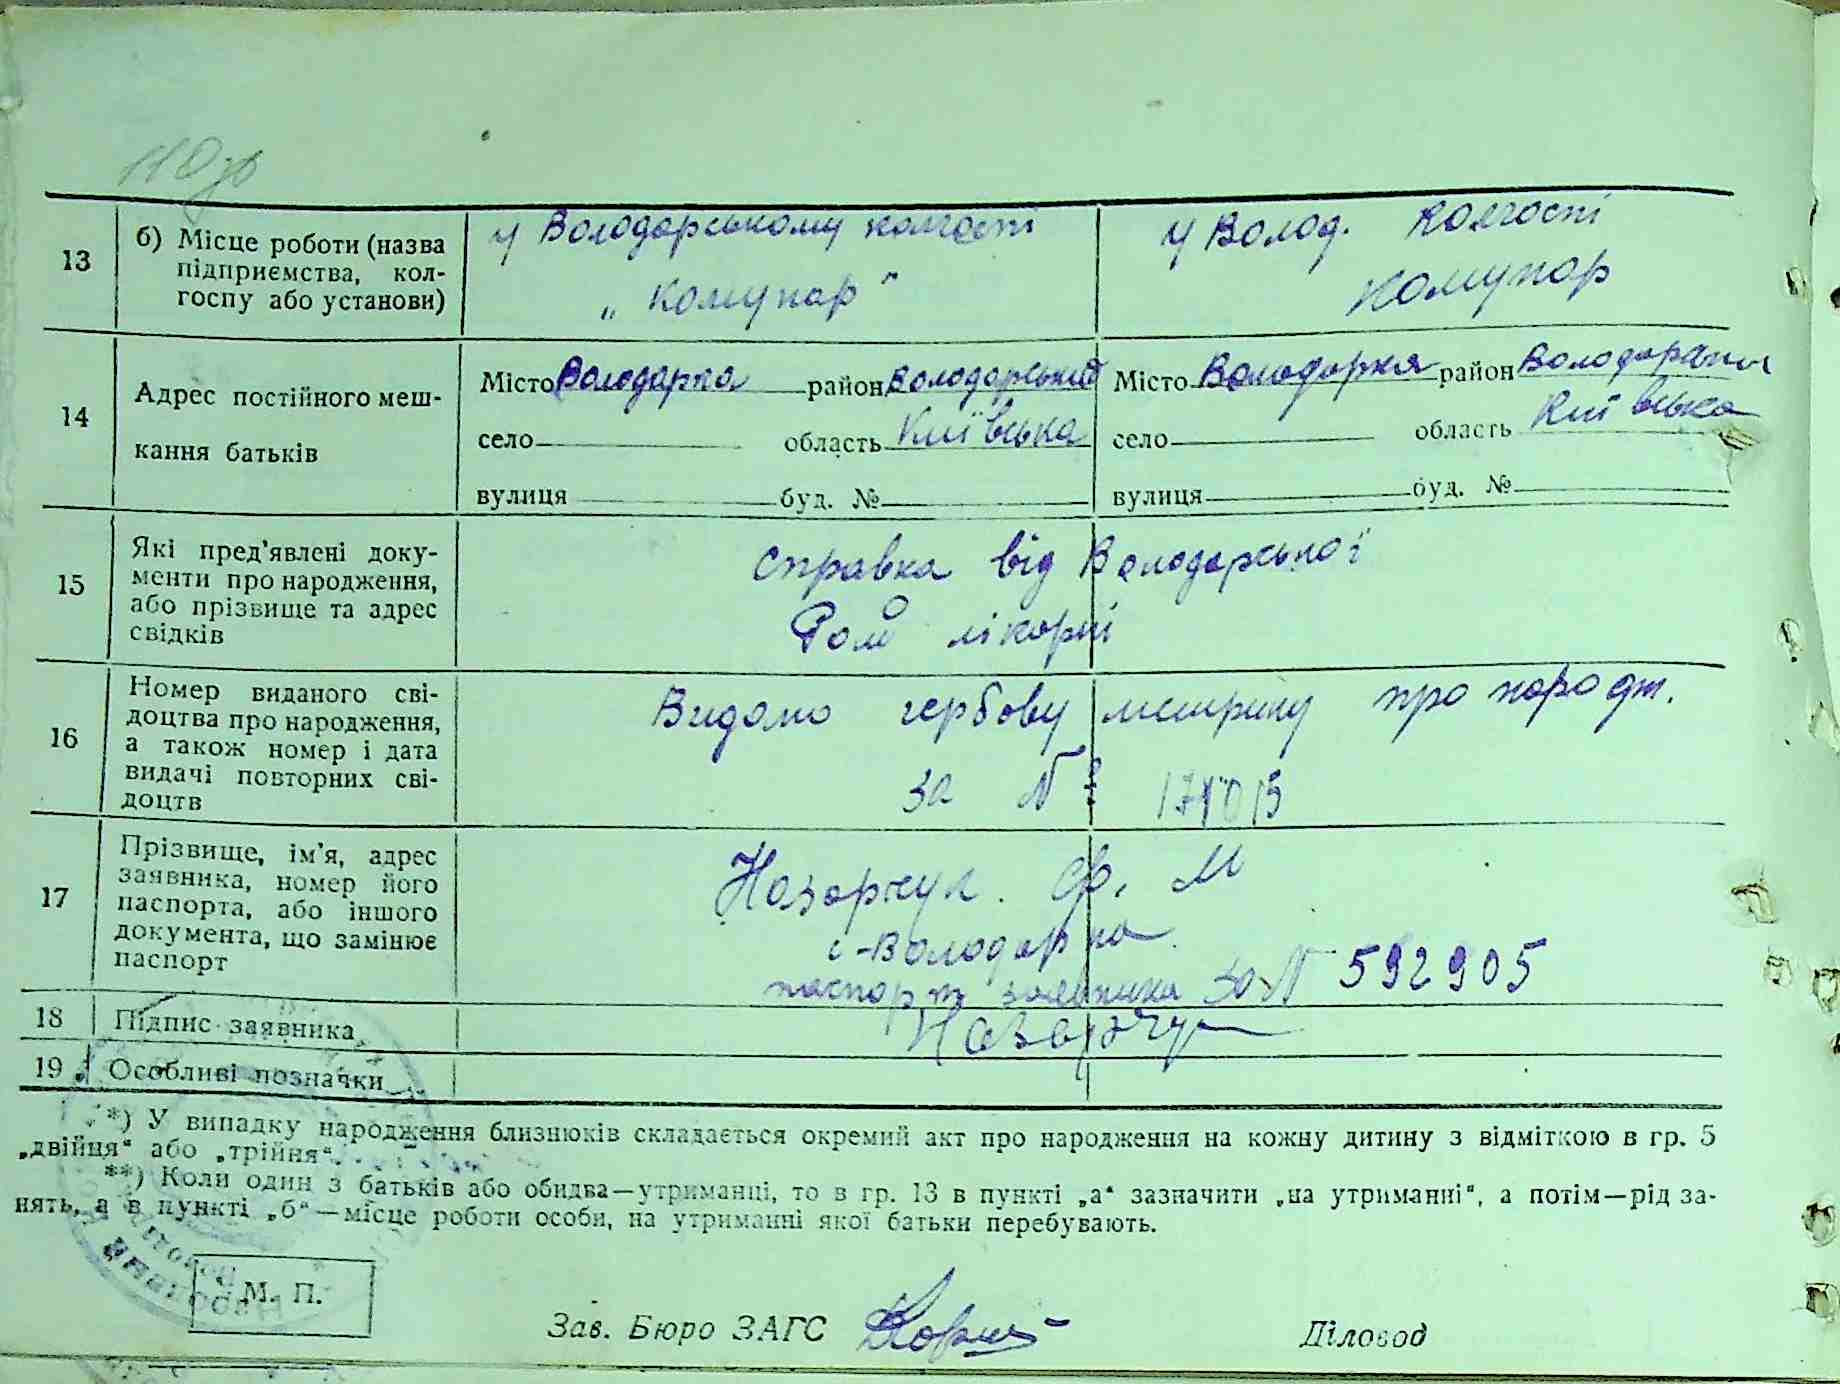 110 зв
13
б) Місце роботи (назва
підприємства, кол-
госпу або установи)
у Володарському колгоспі
„Комунар"
у Волод. колгоспі
Комунар
14
Адрес постійного меш-
кання батьків
Місто Володарка район Володарський
село область Київська
вулиця буд. №
Місто Володарка район Володарський
село область Київська
вулиця буд. №
15
Які пред'явлені доку-
менти про народження,
або прізвище та адрес
свідків
Справка від Володарської
Рай лікарні
16
Номер виданого сві-
доцтва про народження,
а також номер і дата
видачі повторних сві-
доцтв
Видано гербову метрику про народж.
за №
17
Прізвище, ім'я, адрес
заявника, номер його
паспорта, або іншого
документа, що замінює
паспорт
Назарчук. Ф. М
с-Володарка
паспорт заявника за N 592905
18
Підпис заявника
Назарчук
19
Особливі позначки
*) У випадку народження близнюків складається окремий акт про народження на кожну дитину з відміткою в гр. 5
„двійня" або „трійня".
**) Коли один з батьків або обидва—утриманці, то в гр. 13 в пункті „а" зазначити „на утриманні", а потім—рід за-
нять, а в пункті „б"—місце роботи особи, на утриманні якої батьки перебувають.
М. П.
Зав. Бюро ЗАГС
Діловод